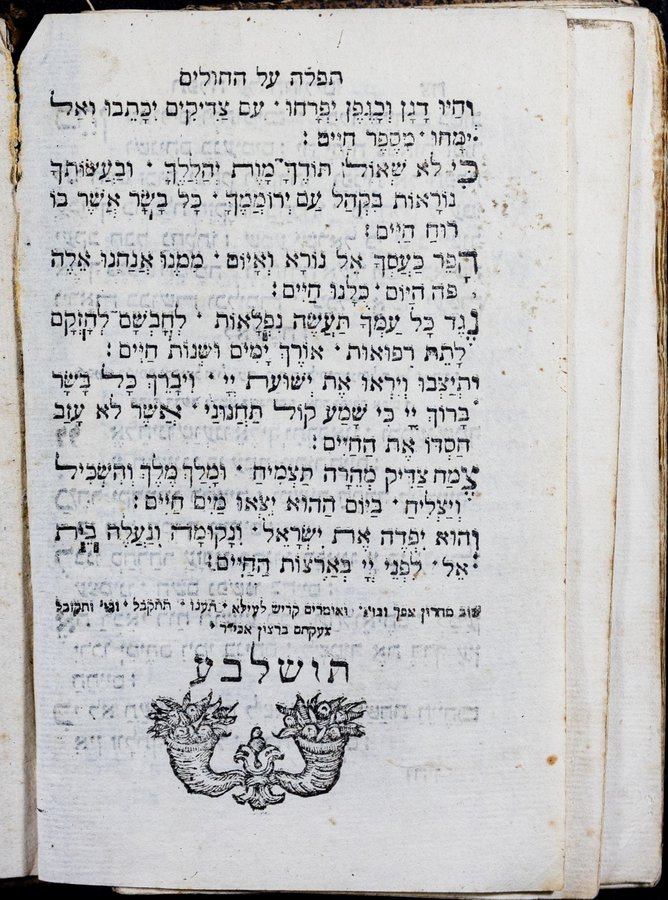 תפלה על החולים
וְהָיוּ דָגָן וְכַגֶפֶן יִפְרָחוּ · עִם צַדִיקִים יִכָּתֵבוּ וְאַל
יִמָחוּ · מִסֵפֶר חַיִים :
כִּי לֹא שְׁאוֹל תּוֹדֶךָּ מָוֶת יְהַלְלֶךָּ · וּבַעֲשׂוֹתְךָ
נוֹרָאוֹת בִּקְהַל עַם יְרוֹמְמֶךָ · כָּל בָּשָׂר אֲשֶׁר בּוֹ
רוּחַ חַיִים :
הָפֵר כַּעַסְךָ אֵל נוֹרָא וְאָיוֹם · מִמֶנוּ אֲנַחְנוּ אֵלֶה
פֹה הַיוֹם · כֻּלָנוּ חַיִים :
נֶגֶד כָּל עַמְךָ תַּעֲשֶׂה נִפְלָאוֹת · לְחָבְשָׁם לְחָזְקָם
לָתֵת רְפוּאוֹת · אוֹרֶךְ יָמִים וּשְׁנוֹת חַיִים :
וְתִיַצְבוּ וְיִרְאוּ אֶת יְשׁוּעַת יְיָ · וִיבָרֵךְ כָּל בָּשָׂר
בָּרוּךְ יְיָ כִּי שָׁמַע קוֹל תַּחֲנוּנַי · אֲשֶׁר לֹא עָזַב
חַסְדוֹ אֶת הַחַיִים :
צֶמַח צַדִיק מְהֵרָה תַּצְמִיחַ · וּמָלַךְ מֶלֶךְ וְהִשְׂכִּיל
וְיַצְלִיחַ · בַּיוֹם הַהוּא יֵצְאוּ מַיִם חַיִים :
וְהוּא יִפְדֶה אֶת יִשְׂרָאֵל · וְנָקוּמָה וְנַעֲלֶה בֵּית
אֵל · לִפְנֵי יְיָ בְּאַרְצוֹת הַחַיִים :
שוב מחרון אפך וגו׳ · ואומרים קדיש לעילא · תענו · תתקבל · וכו׳ ותקובל
צעקתם ברצון אכי״ר ·
תושלבע